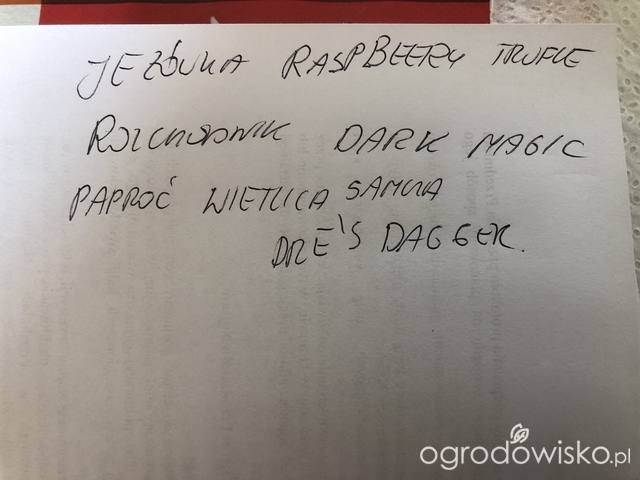 JEŻÓWKA RASPBEERY TRUFLE
ROZCHODNIK DARK MAGIC
PAPROĆ WIETLICA SAMCZA
DRE'S DAGGER.
ogrodowisko.pl